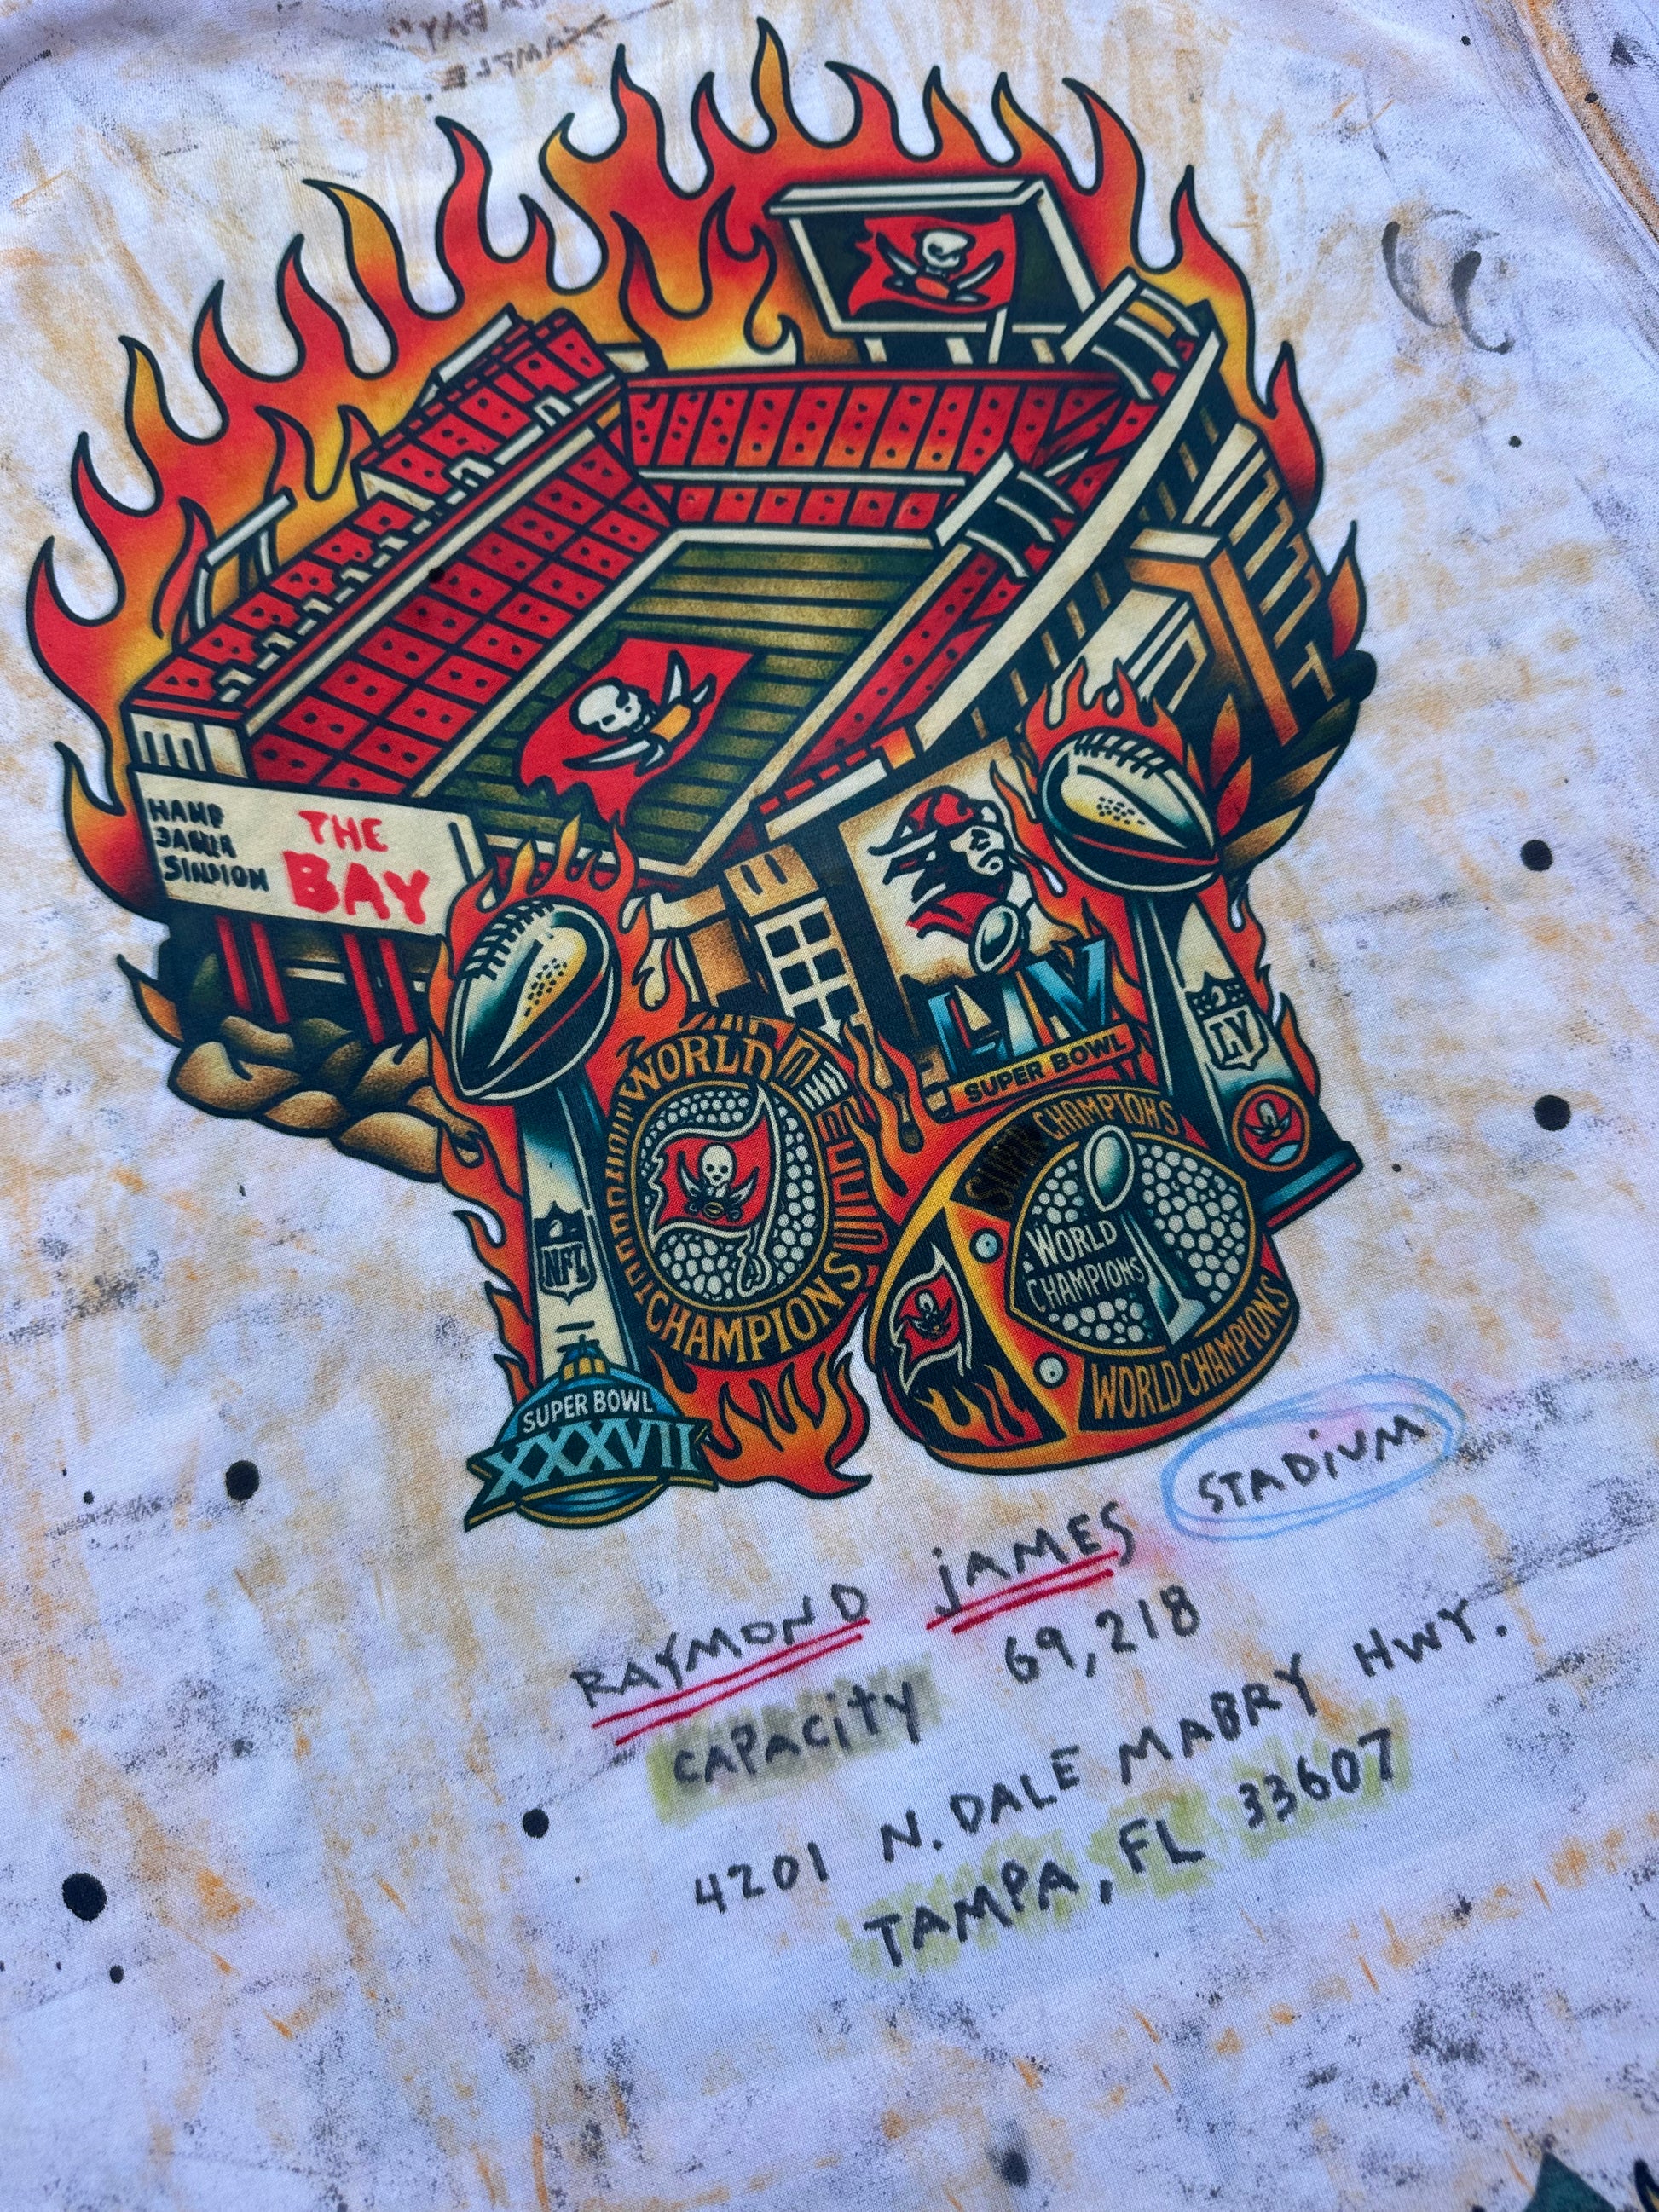 HAMP
THE
BAY
SUPER BOWL
XXXVII
NFL
WORLD
CHAMPIONS
LIV
SUPER BOWL
LV
CHAMPIOHS
WORLD
CHAMPIONS
WORLD CHAMPIONS
RAYMOND JAMES STADIUM
CAPACITY 69,218
4201 N. DALE MABRY HWY.
TAMPA, FL 33607